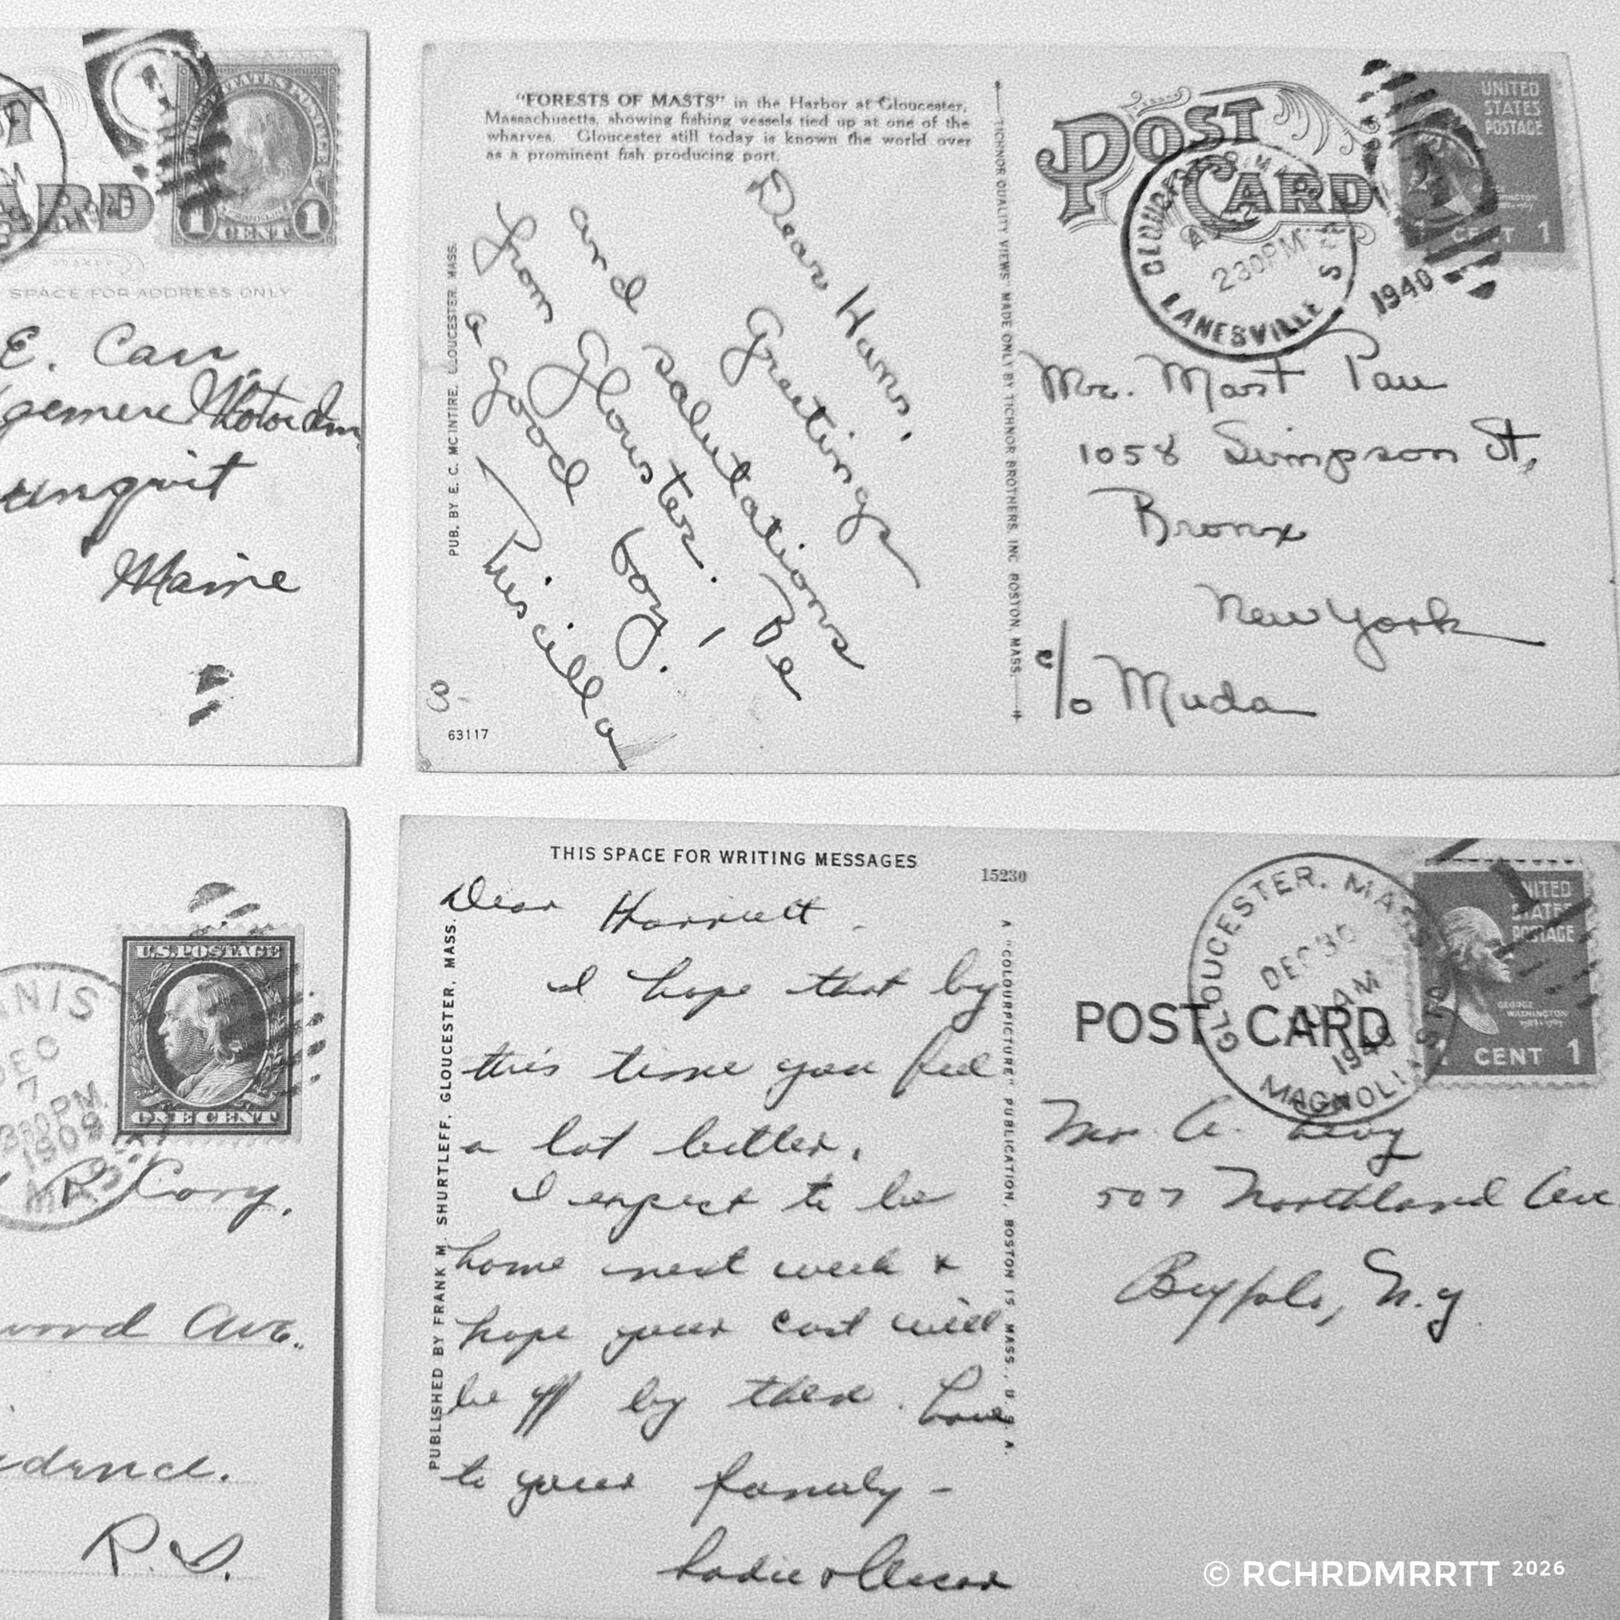 CARD
1 CENT 1
SPACE FOR ADDRESS ONLY
E. Carr
Maine
"FORESTS OF MASTS" in the Harbor at Gloucester,
Massachusetts, showing fishing vessels tied up at one of the
wharves. Gloucester still today is known the world over
as a prominent fish producing port.
PUB. BY E. C. MCINTIRE, GLOUCESTER, MASS.
Dear Hans,
Greetings
and salutations
from Glouster. Be
a good boy!
Priscilla
3-
63117
TICHNOR QUALITY VIEWS MADE ONLY BY TICHNOR BROTHERS, INC. BOSTON, MASS.
POST CARD
GLOUCESTER, MASS.
230PM
LANESVILLE STA
1940
UNITED
STATES
POSTAGE
1 CENT 1
Mr. Mast Pau
1058 Simpson St,
Bronx
New York
c/o Muda
NNIS
DEC
7
330PM
1909
MASS
U.S. POSTAGE
ONE CENT
R. Cory,
wood Ave.
idence.
R.I.
THIS SPACE FOR WRITING MESSAGES
15230
PUBLISHED BY FRANK M. SHURTLEFF, GLOUCESTER, MASS.
Dear Harriett
I hope that by
this time you feel
a lot better.
I expect to be
home next week &
hope your cast will
be off by then. Love
to your family -
Sadie & Oscar
A "COLOURPICTURE" PUBLICATION, BOSTON 15, MASS., U.S.A.
POST CARD
GLOUCESTER, MASS.
DEC 30
AM
MAGNOLIA STA
UNITED
STATES
POSTAGE
GEORGE
WASHINGTON
1 CENT 1
Mr. A. Levy
507 Northland Ave
Buffalo, N.Y
© RCHRDMRRTT 2026